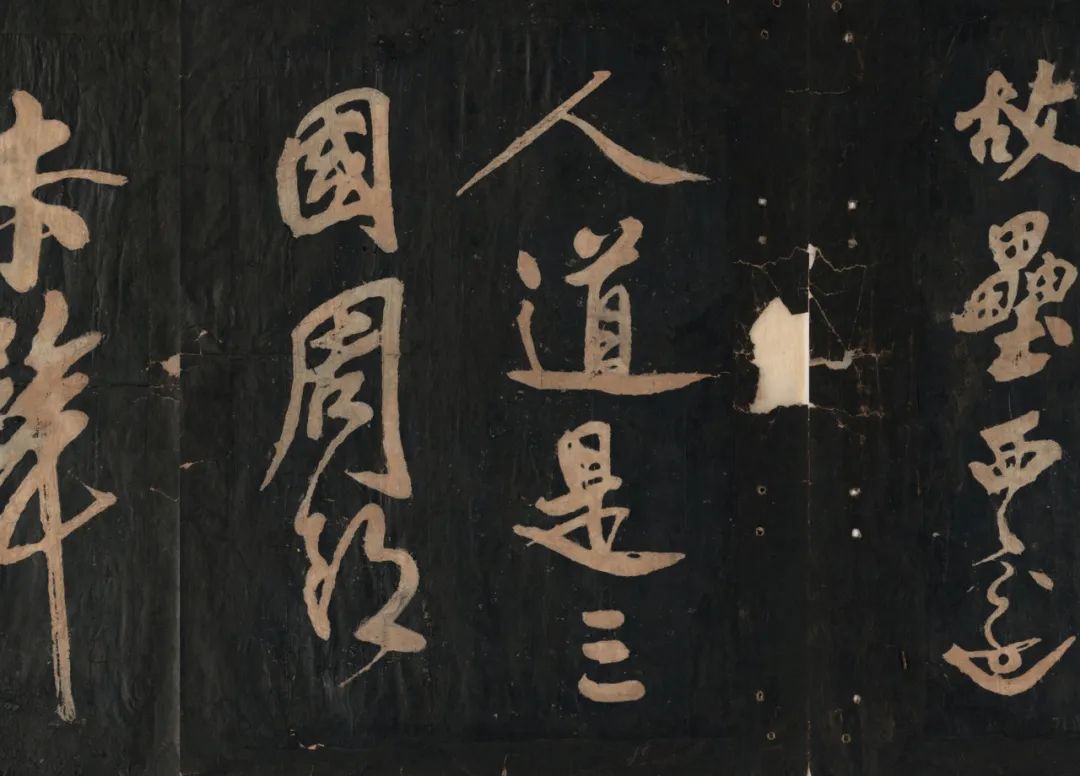 故壘西邊
人道是三
國周郎